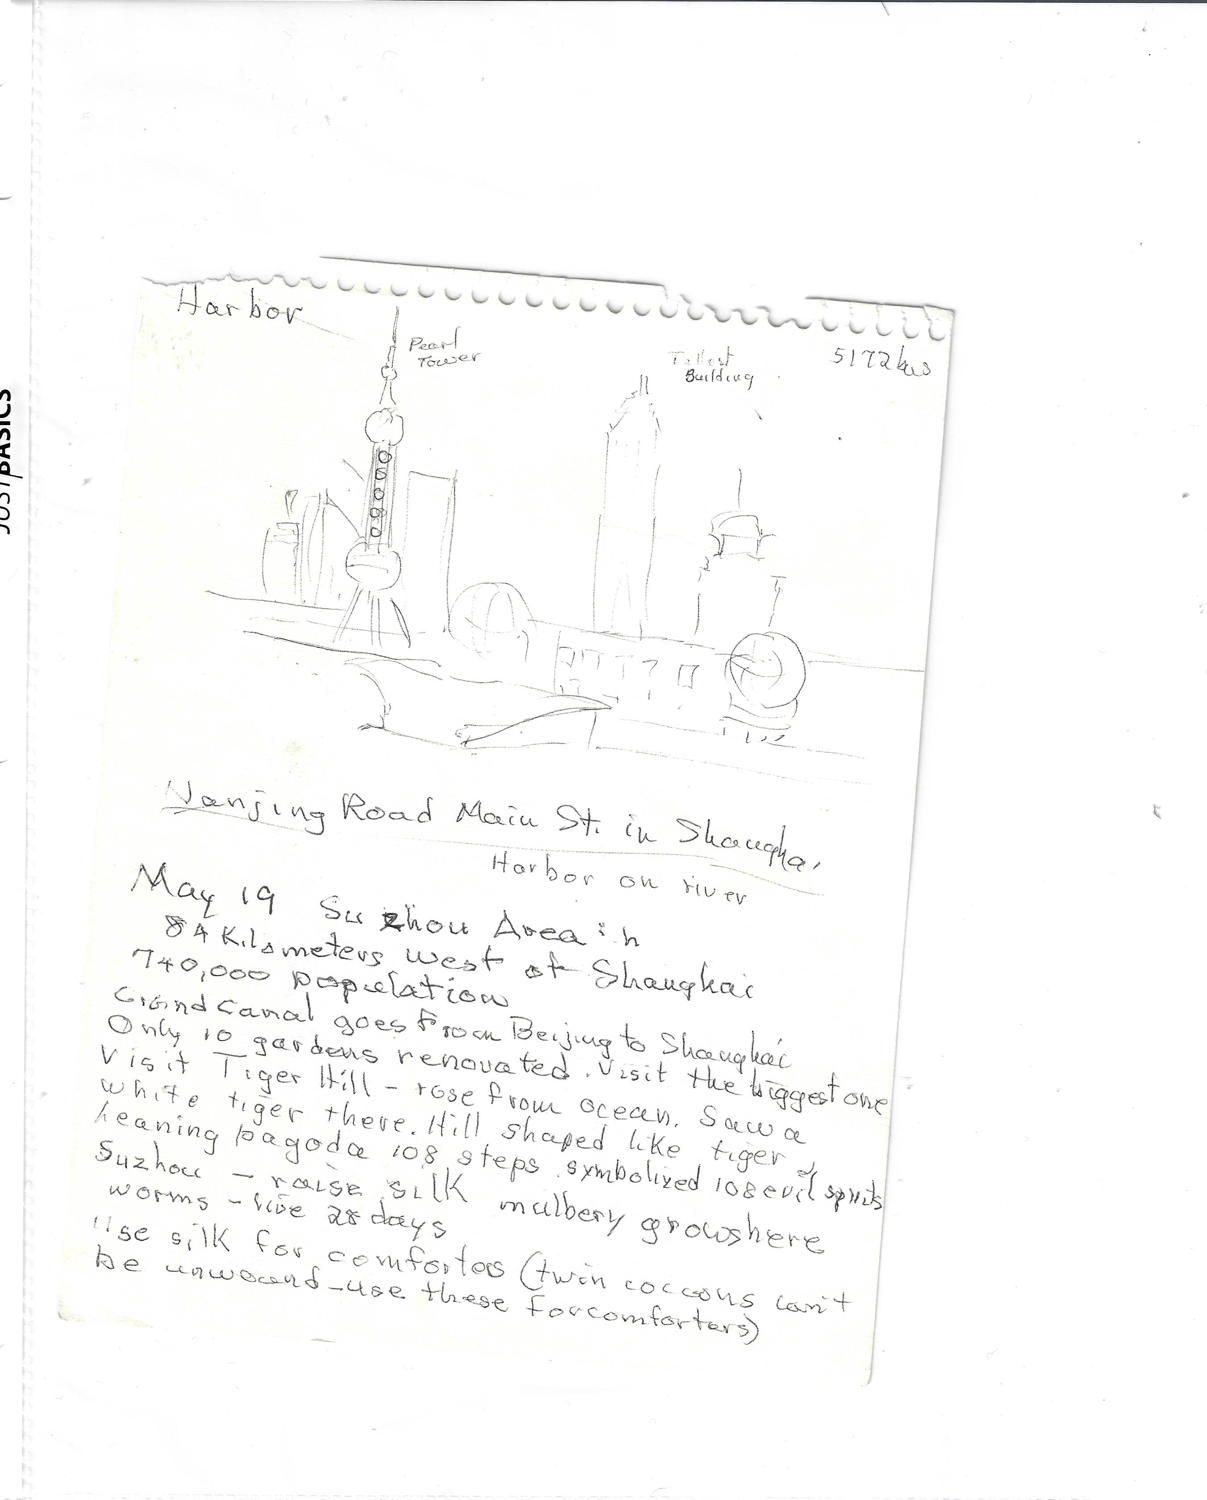 JUST BASICS
Harbor
Pearl
Tower
Tallest
Building
5172
Nanjing Road Main St. in Shanghai
Harbor on river
May 19 Suzhou Area in
84 Kilometers west of Shanghai
740,000 population
Grand Canal goes from Beijing to Shanghai
Only 10 gardens renovated. Visit the biggest one
Visit Tiger Hill - rose from ocean. Saw a
white tiger there. Hill shaped like tiger
Leaning pagoda 108 steps symbolized 108 evil spirits
Suzhou - raise silk mulbery grows here
worms - live 28 days
Use silk for comfortos (twin coccons can't
be unwound - use these for comforters)